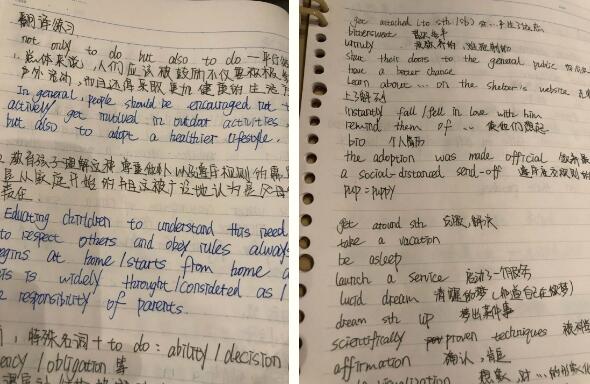 翻译练习
not only to do but also to do — 平行结
1. 总体来说,人们应该被鼓励不仅要积极参
户外活动,而且还要采取更加健康的生活方
In general, people should be encouraged not
actively get involved in outdoor activities,
but also to adopt a healthier lifestyle.
教育孩子理解这种
是从家庭开始的并且这被广泛地认为是父母
责任
Educating children to understand this need
to respect others and obey rules always
egins at home / starts from home a
is widely throught / considered as /
responsibility of parents.
特殊名词 + to do : ability / decision
ency / obligation 等
get attached (to sth / sb) 对…产生了依恋
bittersweet
unruly
shut their doors to the general public
have a better chance
learn about ... on the shelter's website
上了解到
instantly fall / fell in love with him
remind them of .. 使他们想起
bio 个人简介
the adoption was made official
a social-distanced send-off
pup = puppy
get around sth 克服,解决
take a vacation
be asleep
launch a service 启动了一个服务
lucid dream 清醒的梦 (知道自己在做梦)
dream sth up
scientifically proven techniques
affirmation 确认,肯定
想象